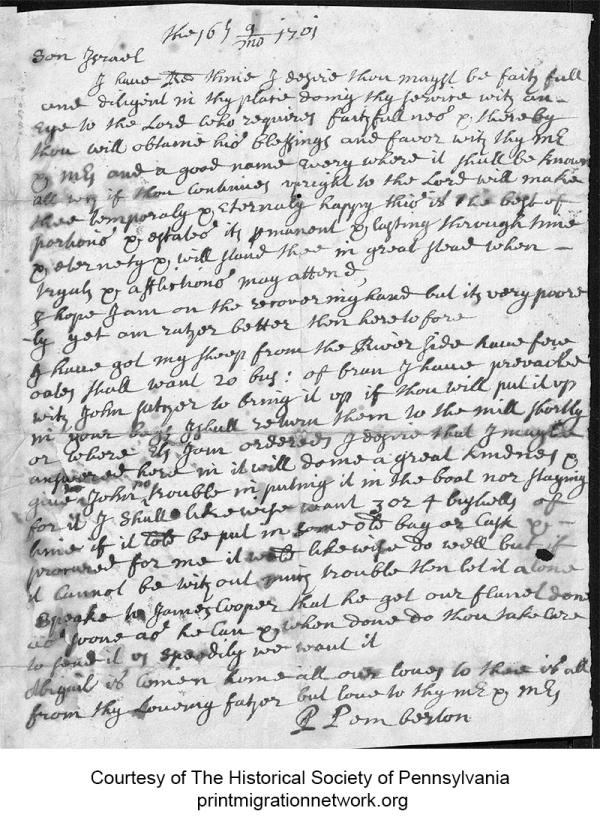 the 16th 9/mo 1701
Son Israel
I have time I desire thou mayst be faithfull
and diligent in thy place doing thy service with an
Eye to the Lord who requires faithfullness & thereby
thou will obtaine his blessings and favor with thy Mr
& Mrs and a good name Every where it shall be known
if thou Continues upright to the Lord will make
thee temporaly & Eternaly happy this is the best of
portions & estates its permanent & lasting through time
& eternety & will stand thee in great stead when
tryals & afflictions may attend
I hope I am on the recovering hand but its very poore
ly yet am rather better then heretofore
I have got my sheep from the River side have few
oates shall want 20 bus: of bran I have prevailed
with John to bring it up if thou will put it up
in your bags I shall return them to the mill shortly
or where ordered I desire that I may be
answered here in it will do me a great kindnes &
give John no trouble in puting it in the boat nor staying
for it I shall likewise want 3 or 4 bushells of
lime if it be put in some old bag or Cask &
procured for me it likewise do well but if
it Cannot be without trouble then let it alone
Speake to James Cooper that he get our flanel done
as soone as he Can & when done do thou take Care
to send it us speedily we want it
Abigail is Comen home all our loves to thee is all
from thy Loveing father but love to thy Mr & Mrs
P Pemberton
Courtesy of The Historical Society of Pennsylvania
printmigrationnetwork.org